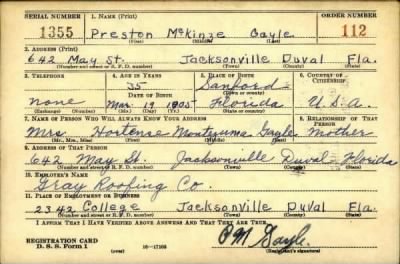 SERIAL NUMBER 1. NAME (Print) ORDER NUMBER
1355 Preston McKinze Gayle 112
(First) (Middle) (Last)
2. ADDRESS (Print)
642 May St. Jacksonville Duval Fla.
(Number and street or R. F. D. number) (Town) (County) (State)
3. TELEPHONE 4. AGE IN YEARS 5. PLACE OF BIRTH 6. COUNTRY OF CITIZENSHIP
35 Sanford
DATE OF BIRTH (Town or county)
none Mar. 19 1905 Florida U.S.A.
7. NAME OF PERSON WHO WILL ALWAYS KNOW YOUR ADDRESS 8. RELATIONSHIP OF THAT PERSON
Mrs Hortense Montezuma Gayle Mother
(Mr., Mrs., Miss) (First) (Middle) (Last)
9. ADDRESS OF THAT PERSON
642 May St. Jacksonville Duval Florida
(Number and street or R. F. D. number) (Town) (County) (State)
10. EMPLOYER'S NAME
Gray Roofing Co.
11. PLACE OF EMPLOYMENT OR BUSINESS
2342 College Jacksonville Duval Fla.
(Number and street or R. F. D. number) (Town) (County) (State)
I AFFIRM THAT I HAVE VERIFIED ABOVE ANSWERS AND THAT THEY ARE TRUE.
REGISTRATION CARD
D. S. S. Form 1 16-17105 P M Gayle
(Registrant's signature)